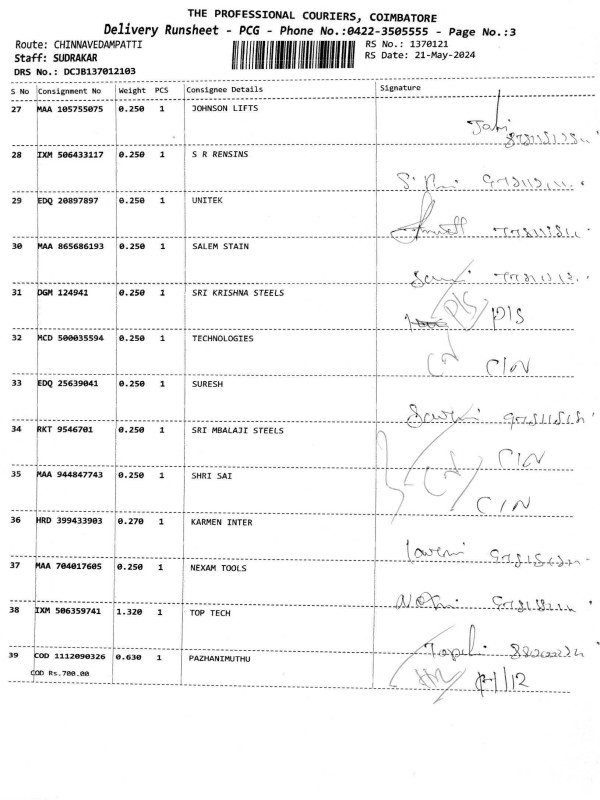 THE PROFESSIONAL COURIERS, COIMBATORE
Delivery Runsheet - PCG - Phone No.:0422-3505555 - Page No.:3
Route: CHINNAVEDAMPATTI RS No.: 1370121
Staff: SUDRAKAR RS Date: 21-May-2024
DRS No.: DCJB137012103
S No Consignment No Weight PCS Consignee Details Signature
27 MAA 105755075 0.250 1 JOHNSON LIFTS
28 IXM 506433117 0.250 1 S R RENSINS
29 EDQ 20897897 0.250 1 UNITEK
30 MAA 865686193 0.250 1 SALEM STAIN
31 DGM 124941 0.250 1 SRI KRISHNA STEELS
D/S D/S
32 MCD 500035594 0.250 1 TECHNOLOGIES
C/N
33 EDQ 25639041 0.250 1 SURESH
34 RKT 9546701 0.250 1 SRI MBALAJI STEELS
C/N
35 MAA 944847743 0.250 1 SHRI SAI
C/N
36 HRD 399433903 0.270 1 KARMEN INTER
37 MAA 704017605 0.250 1 NEXAM TOOLS
38 IXM 506359741 1.320 1 TOP TECH
39 COD 1112090326 0.630 1 PAZHANIMUTHU
COD Rs.700.00